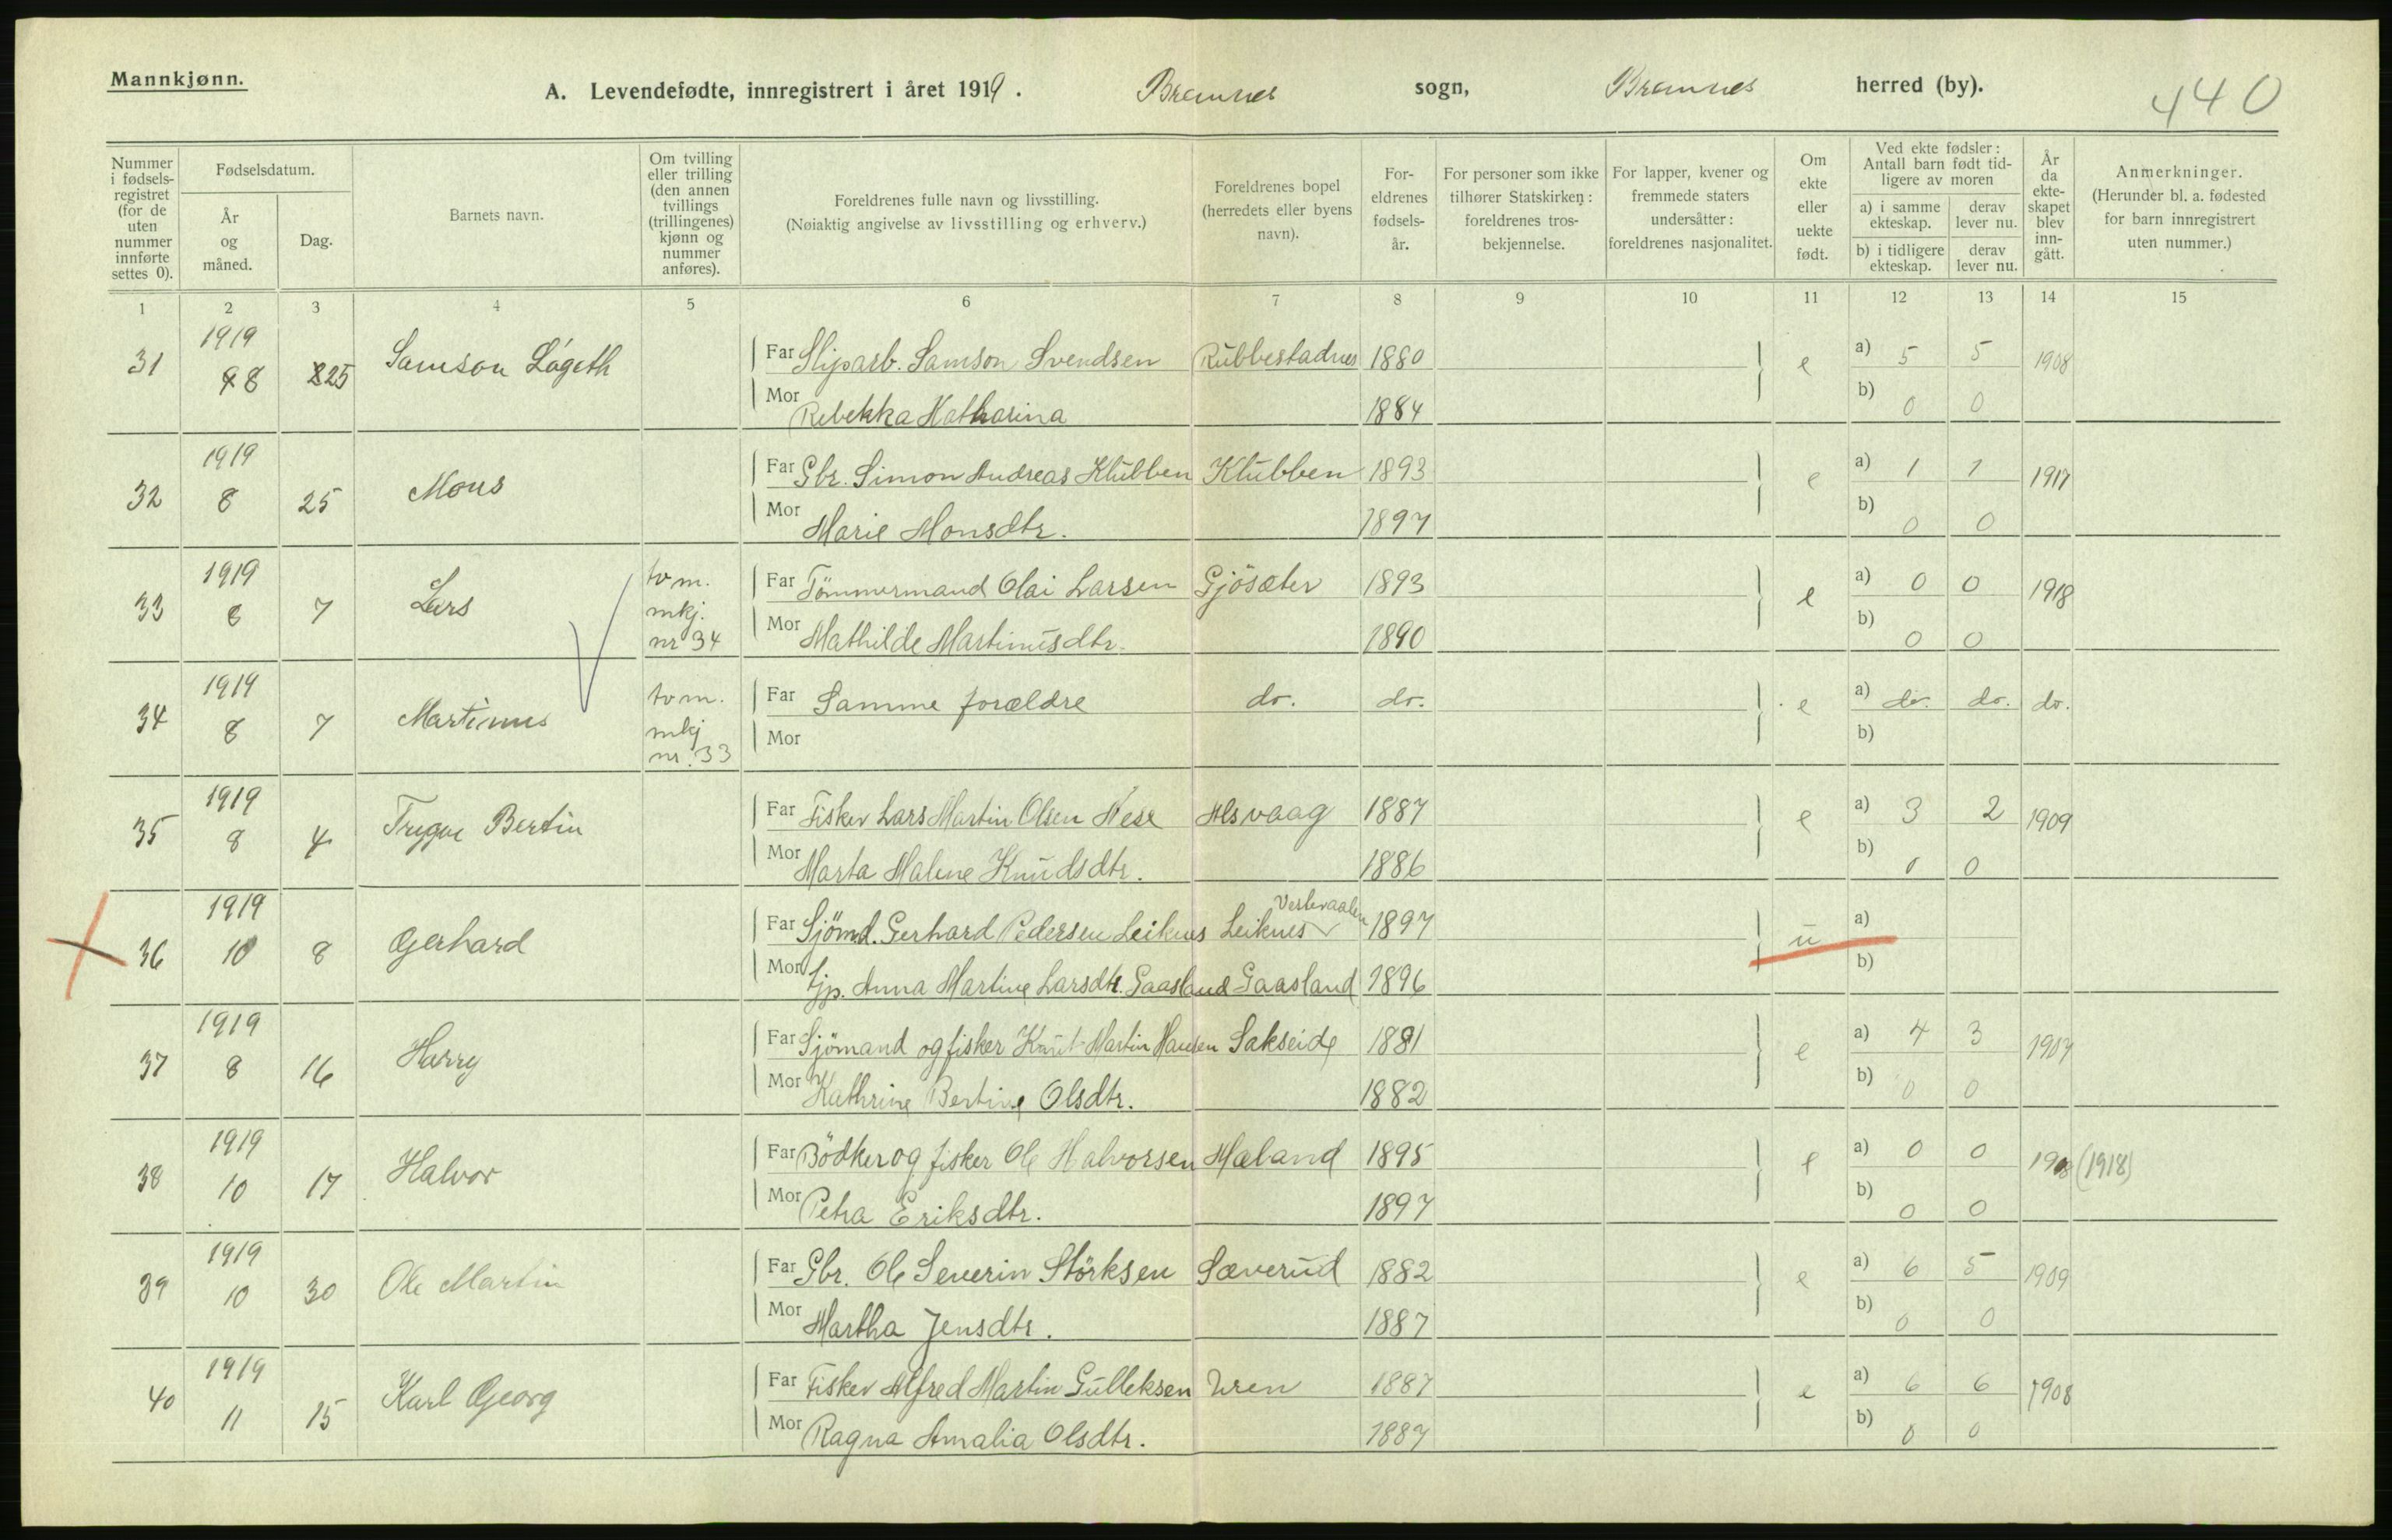 Mannkjønn.
A. Levendefødte, innregistrert i året 1919. Bremnes sogn, Bremnes herred (by).
440
Nummer i fødsels-registret (for de uten nummer innførte settes 0).
Fødselsdatum.
År og måned.
Dag.
Barnets navn.
Om tvilling eller trilling (den annen tvillings (trillingenes) kjønn og nummer anføres).
Foreldrenes fulle navn og livsstilling.
(Nøiaktig angivelse av livsstilling og erhverv.)
Foreldrenes bopel (herredets eller byens navn).
For-eldrenes fødsels-år.
For personer som ikke tilhører Statskirken: foreldrenes tros-bekjennelse.
For lapper, kvener og fremmede staters undersåtter: foreldrenes nasjonalitet.
Om ekte eller uekte født.
Ved ekte fødsler: Antall barn født tid-ligere av moren
a) i samme ekteskap.
derav lever nu.
b) i tidligere ekteskap.
derav lever nu.
År da ekte-skapet blev inn-gått.
Anmerkninger.
(Herunder bl. a. fødested for barn innregistrert uten nummer.)
1 2 3 4 5 6 7 8 9 10 11 12 13 14 15
31 1919 8 25 Samson Lágeth Far Sliparb. Samson Svendsen Rubbestadnes 1880 e a) 5 5 1908
Mor Rebekka Katharina 1884 b) 0 0
32 1919 8 25 Mons Far Gbr. Simon Andreas Klubben Klubben 1893 e a) 1 1 1917
Mor Marie Monsdtr. 1897 b) 0 0
33 1919 8 7 Lars tvm. mkj. nr 34 Far Tömmermand Olai Larsen Gjösæter 1893 e a) 0 0 1918
Mor Mathilde Martinusdtr. 1890 b) 0 0
34 1919 8 7 Martinus tvm. mkj nr. 33 Far Samme forældre do. do. e a) do. do. do.
Mor b)
35 1919 8 4 Trygve Bertin Far Fisker Lars Martin Olsen Nese Alsvaag 1887 e a) 3 2 1909
Mor Marta Malene Knudsdtr. 1886 b) 0 0
36 1919 10 8 Gerhard Far Sjömd. Gerhard Pedersen Leiknes Leiknes Vestevaalen 1897 u a)
Mor Tjp. Anna Martine Larsdtr. Gaasland Gaasland 1896 b)
37 1919 8 16 Harry Far Sjömand og fisker Knut Martin Hansen Sakseide 1881 e a) 4 3 1907
Mor Kathrine Bertine Olsdtr. 1882 b) 0 0
38 1919 10 17 Halvor Far Bödker og fisker Ole Halvorsen Mæland 1895 e a) 0 0 1918 (1918)
Mor Petra Eriksdtr. 1897 b) 0 0
39 1919 10 30 Ole Martin Far Gbr. Ole Severin Störksen Sæverud 1882 e a) 6 5 1909
Mor Martha Jensdtr. 1887 b) 0 0
40 1919 11 15 Karl Georg Far Fisker Alfred Martin Gulleksen Uren 1887 e a) 6 6 1908
Mor Ragna Amalia Olsdtr. 1887 b) 0 0